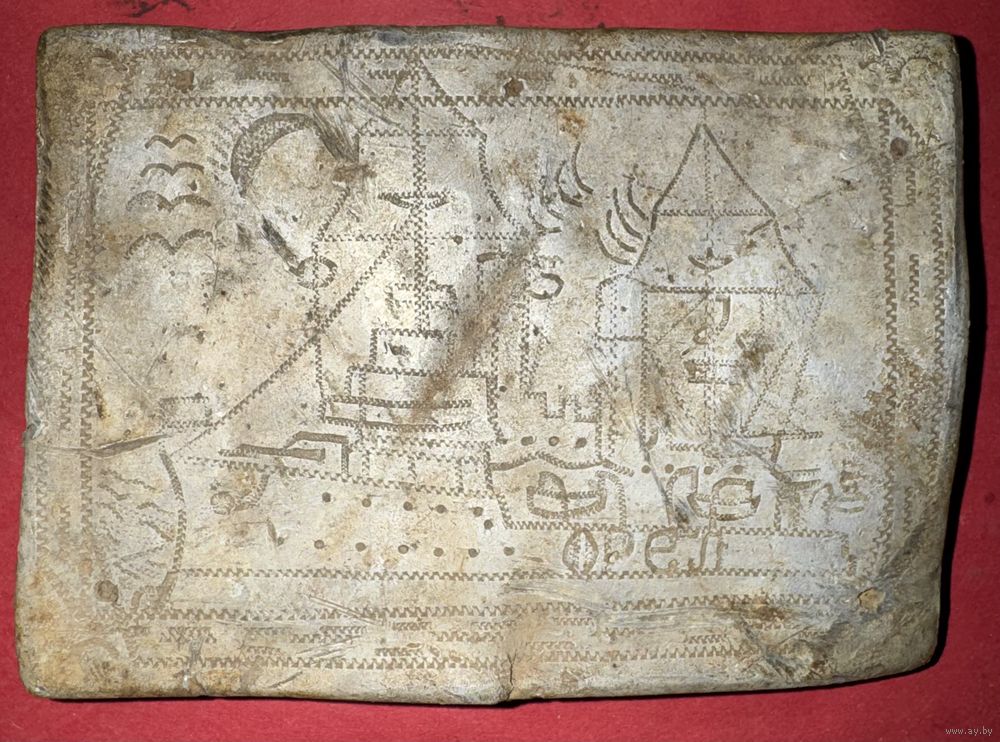 Орел
www.ay.by